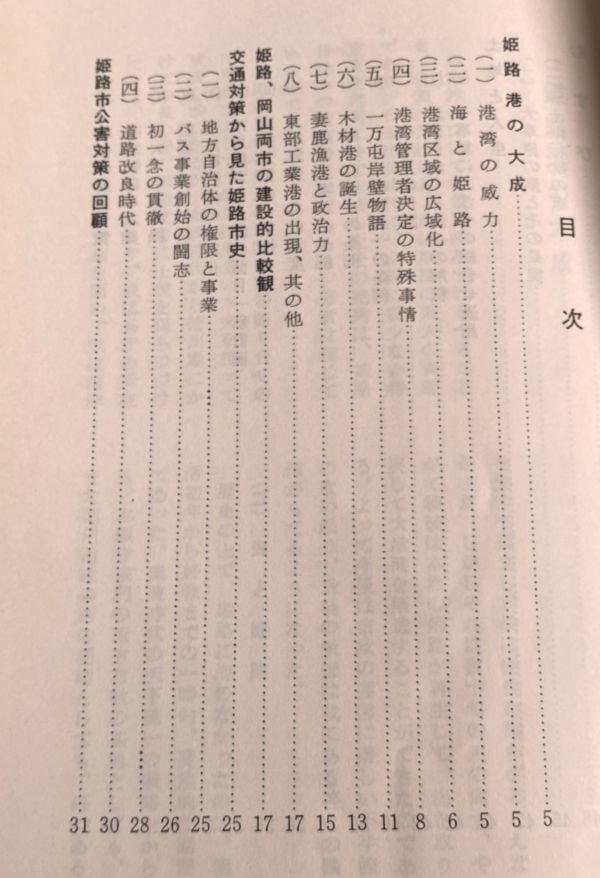 目次
姫路港の大成……5
(一) 港湾の威力……5
(二) 海と姫路……5
(三) 港湾区域の広域化……6
(四) 港湾管理者決定の特殊事情……8
(五) 一万屯岸壁物語……11
(六) 木材港の誕生……13
(七) 妻鹿漁港と政治力……15
(八) 東部工業港の出現、其の他……17
姫路、岡山両市の建設的比較観……17
交通対策から見た姫路市史……25
(一) 地方自治体の権限と事業……25
(二) バス事業創始の闘志……26
(三) 初一念の貫徹……28
(四) 道路改良時代……30
姫路市公害対策の回顧……31